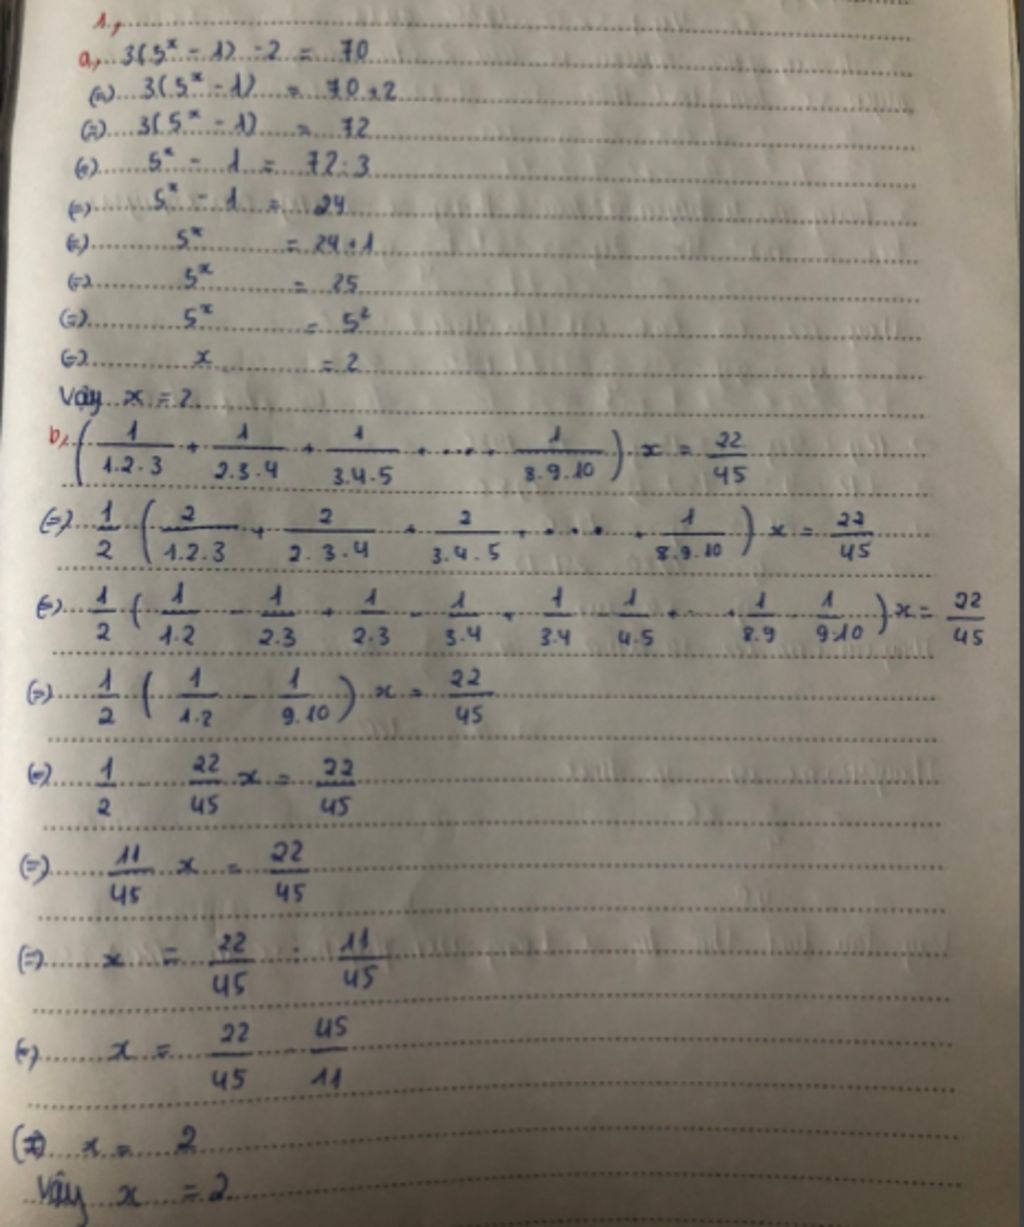 1,
a, 3(5^x - 1) - 2 = 70
(=) 3(5^x - 1) = 70 + 2
(=) 3(5^x - 1) = 72
(=) 5^x - 1 = 72 : 3
(=) 5^x - 1 = 24
(=) 5^x = 24 + 1
(=) 5^x = 25
(=) 5^x = 5^2
(=) x = 2
Vậy x = 2
b, (1/1.2.3 + 1/2.3.4 + 1/3.4.5 + .... + 1/8.9.10) . x = 22/45
(=) 1/2 (2/1.2.3 + 2/2.3.4 + 2/3.4.5 + .... + 1/8.9.10) x = 22/45
(=) 1/2 (1/1.2 - 1/2.3 + 1/2.3 - 1/3.4 + 1/3.4 - 1/4.5 + ... + 1/8.9 - 1/9.10) x = 22/45
(=) 1/2 (1/1.2 - 1/9.10) x = 22/45
(=) 1/2 . 22/45 x = 22/45
(=) 11/45 x = 22/45
(=) x = 22/45 : 11/45
(=) x = 22/45 . 45/11
(=) x = 2
Vậy x = 2